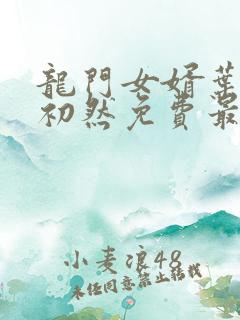 龍門女婿葉
初然免費最
小麦浪48
未经同意禁止转载